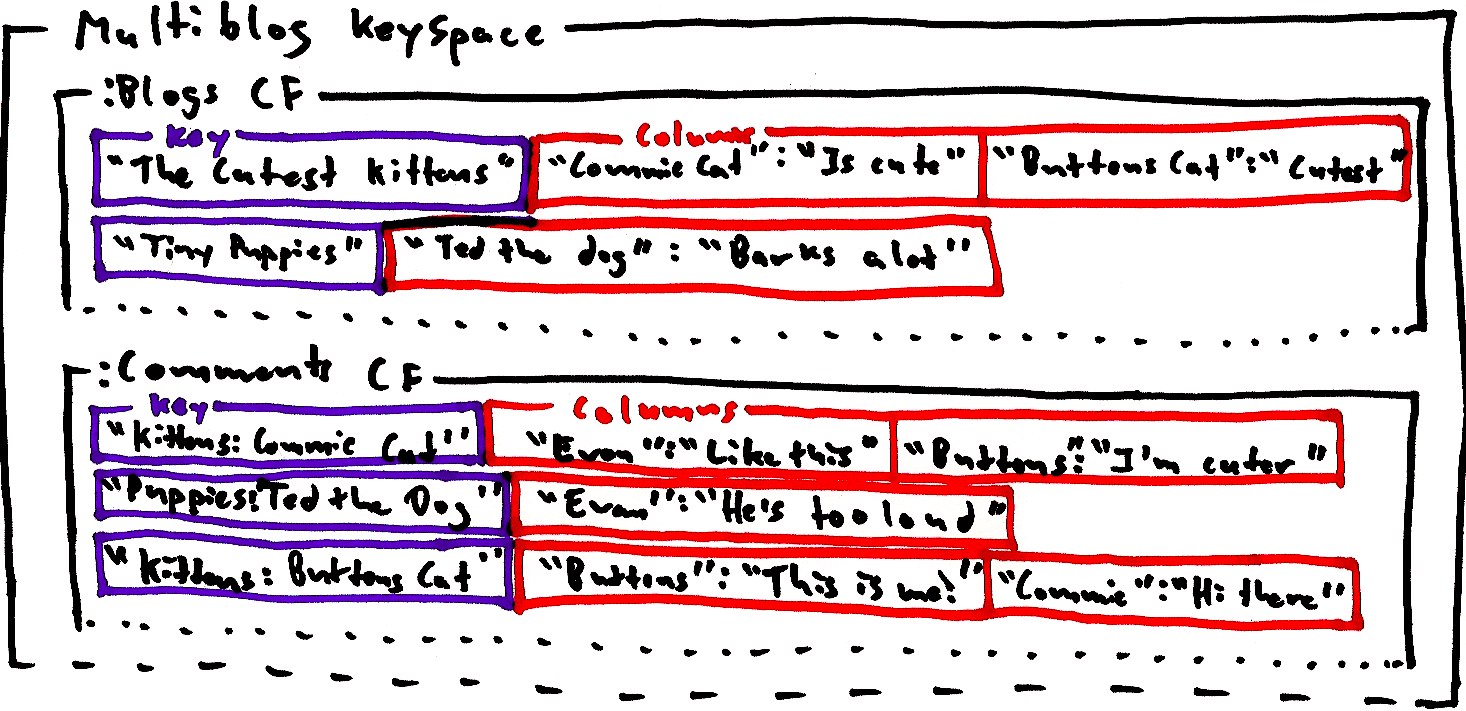 Multiblog Keyspace
:Blogs CF
Key Columns
"The Cutest Kittens" "Commie Cat":"Is cute" "Buttons Cat":"Cutest"
"Tiny Puppies" "Ted the dog":"Barks alot"
:Comments CF
Key Columns
"Kittens:Commie Cat" "Evan":"Like this" "Buttons":"I'm cuter"
"Puppies:Ted the Dog" "Evan":"He's too loud"
"Kittens:Buttons Cat" "Buttons":"This is me!" "Commie":"Hi there"